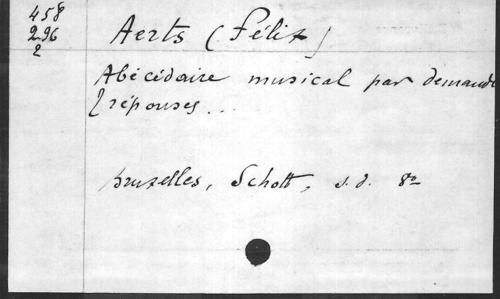 458
296
2
Aerts (Félix)
Abécédaire musical par demande
& réponses...
Bruxelles, Schott, s.d. 8º